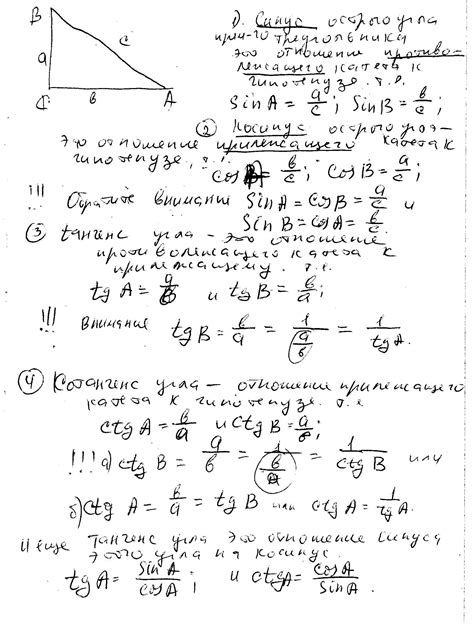 B
a
c
C
b
A
1. Синус острого угла
прям-го треугольника
это отношение противо-
лежащего катета к
гипотенузе. т.е.
sin A = a/c ; sin B = b/c ;
② Косинус острого угла-
это отношение прилежащего катета к
гипотенузе, т.е.
cos = b/c ; cos B = a/c ;
!!! Обратите внимание sin A = cos B = a/c и
sin B = cos A = b/c
③ тангенс угла - это отношение
противолежащего катета к
прилежащему. т.е.
tg A = a/b и tg B = b/a ;
!!! Внимание tg B = b/a = 1/(a/b) = 1/tg A.
④ Котангенс угла — отношение прилежащего
катета к гипотенузе. т.е.
ctg A = b/a и ctg B = a/b ;
!!! а) ctg B = a/b = 1/(b/a) = 1/ctg B или
б) ctg A = b/a = tg B или ctg A = 1/tg A.
И еще тангенс угла это отношение синуса
этого угла на косинус.
tg A = sin A/cos A ; и ctg A = cos A/sin A .